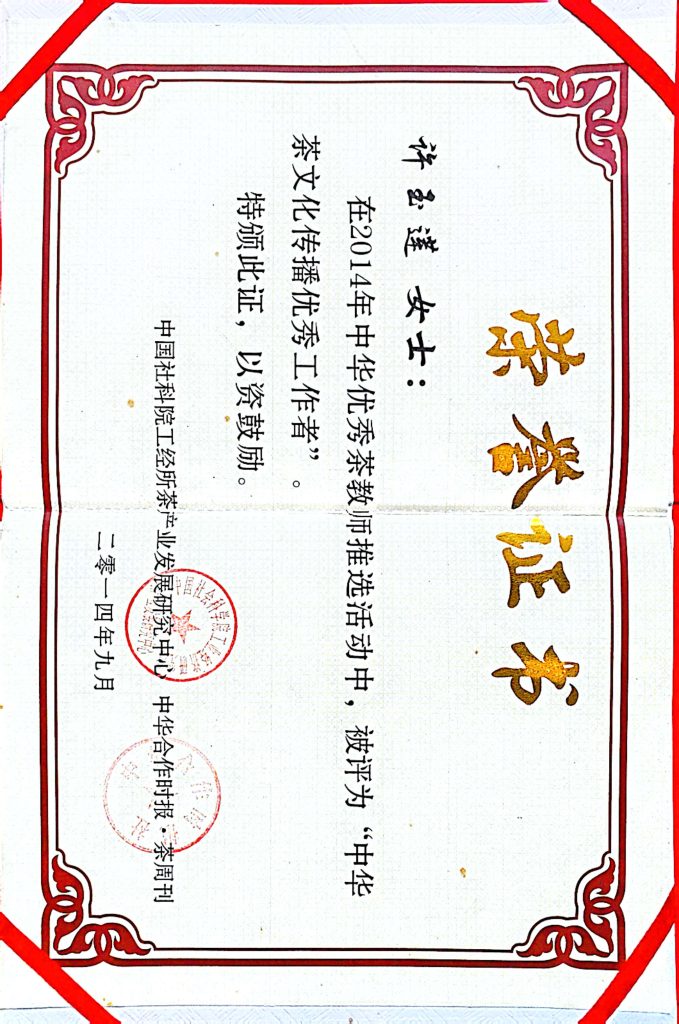 荣誉证书
许玉莲 女士：
在2014年中华优秀茶教师推选活动中，被评为“中华
茶文化传播优秀工作者”。
特颁此证，以资鼓励。
中国社科院工经所茶产业发展研究中心 中华合作时报·茶周刊
二零一四年九月